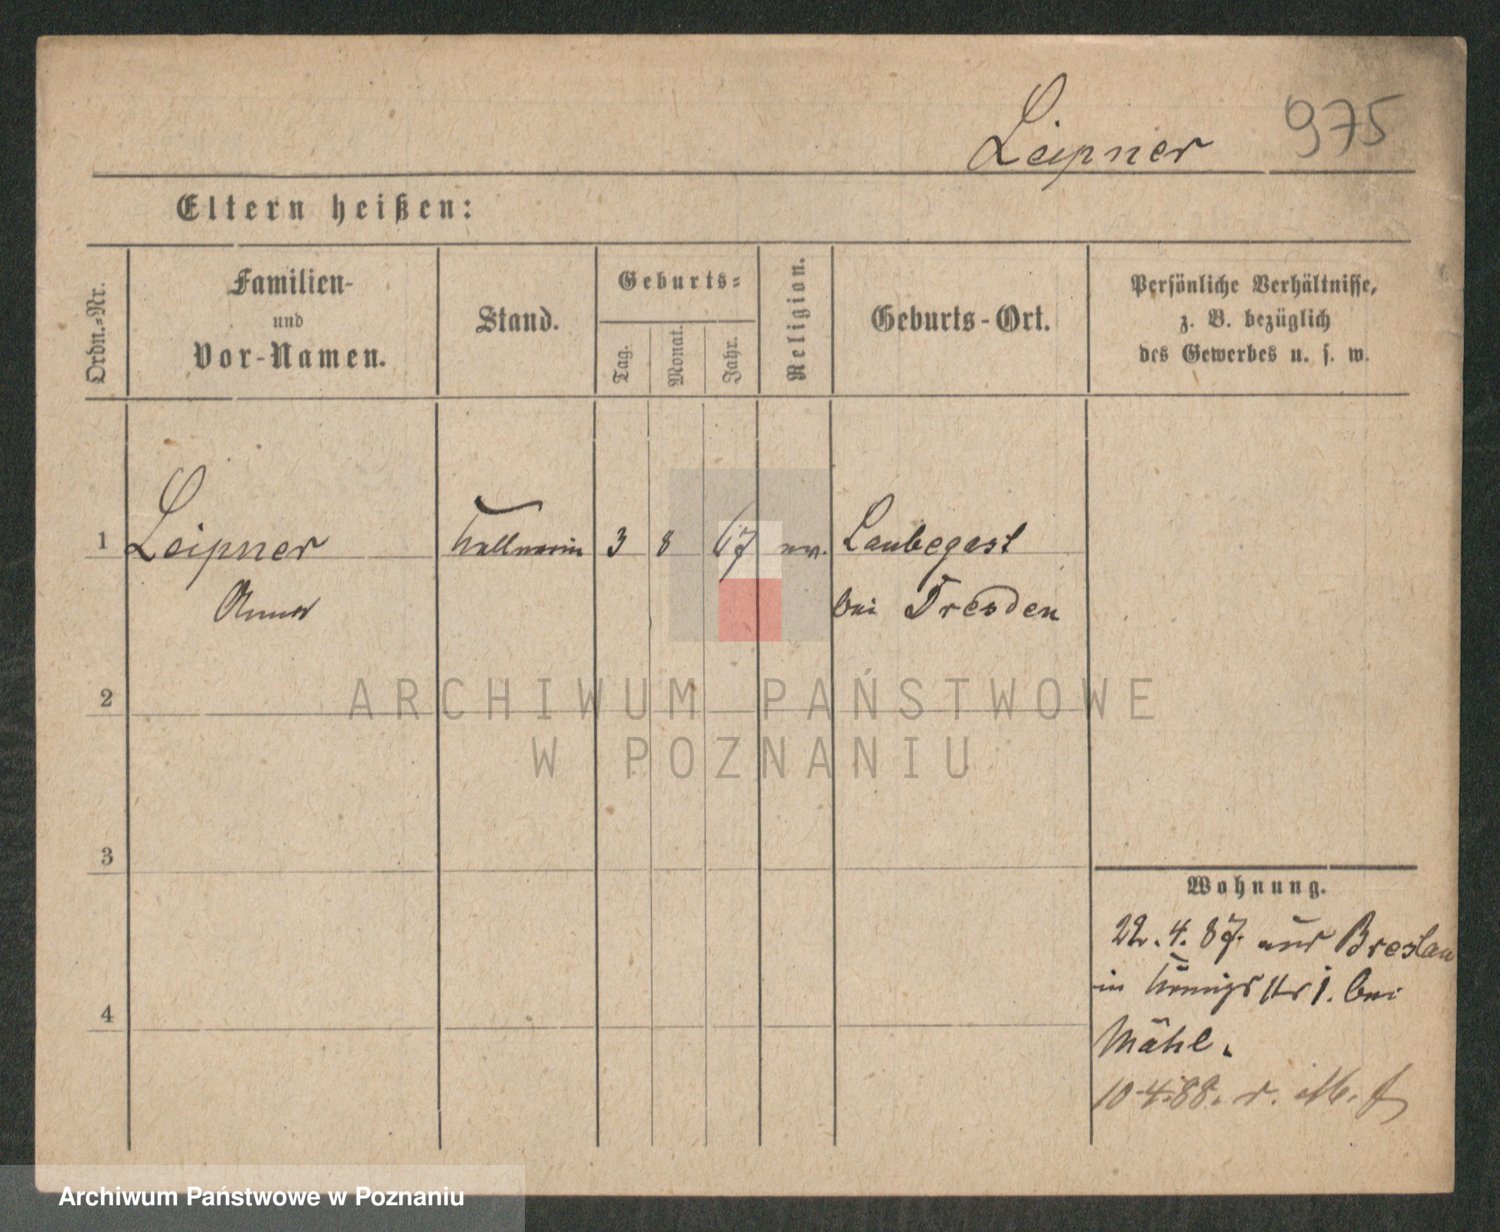 Leipner
975
Eltern heißen:
Ordn.-Nr.
Familien-
und
Vor-Namen.
Stand.
Geburts-
Tag.
Monat.
Jahr.
Religion.
Geburts-Ort.
Persönliche Verhältnisse,
z. B. bezüglich
des Gewerbes u. s. w.
1
Leipner Kellnerin 3 8 67 ev. Laubegast
Anna bei Dresden
ARCHIWUM PAŃSTWOWE
W POZNANIU
2
3
4
Wohnung.
22. 4. 87. aus Breslau
in Königsstr 1. bei
Mähl.
10.4.88. v.
Archiwum Państwowe w Poznaniu